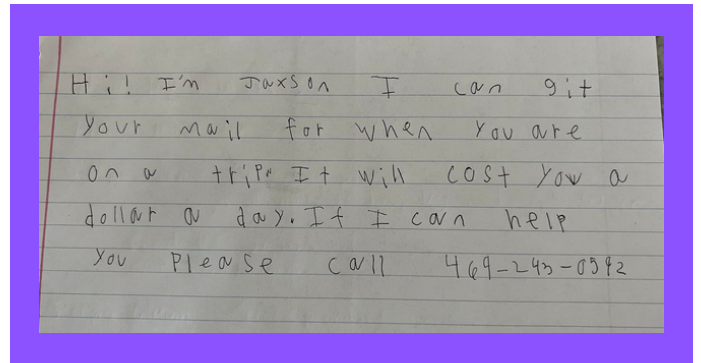 Hi! I'm Jaxson I can git
your mail for when you are
on a trip. It will cost you a
dollar a day. If I can help
you please call 469-243-0592